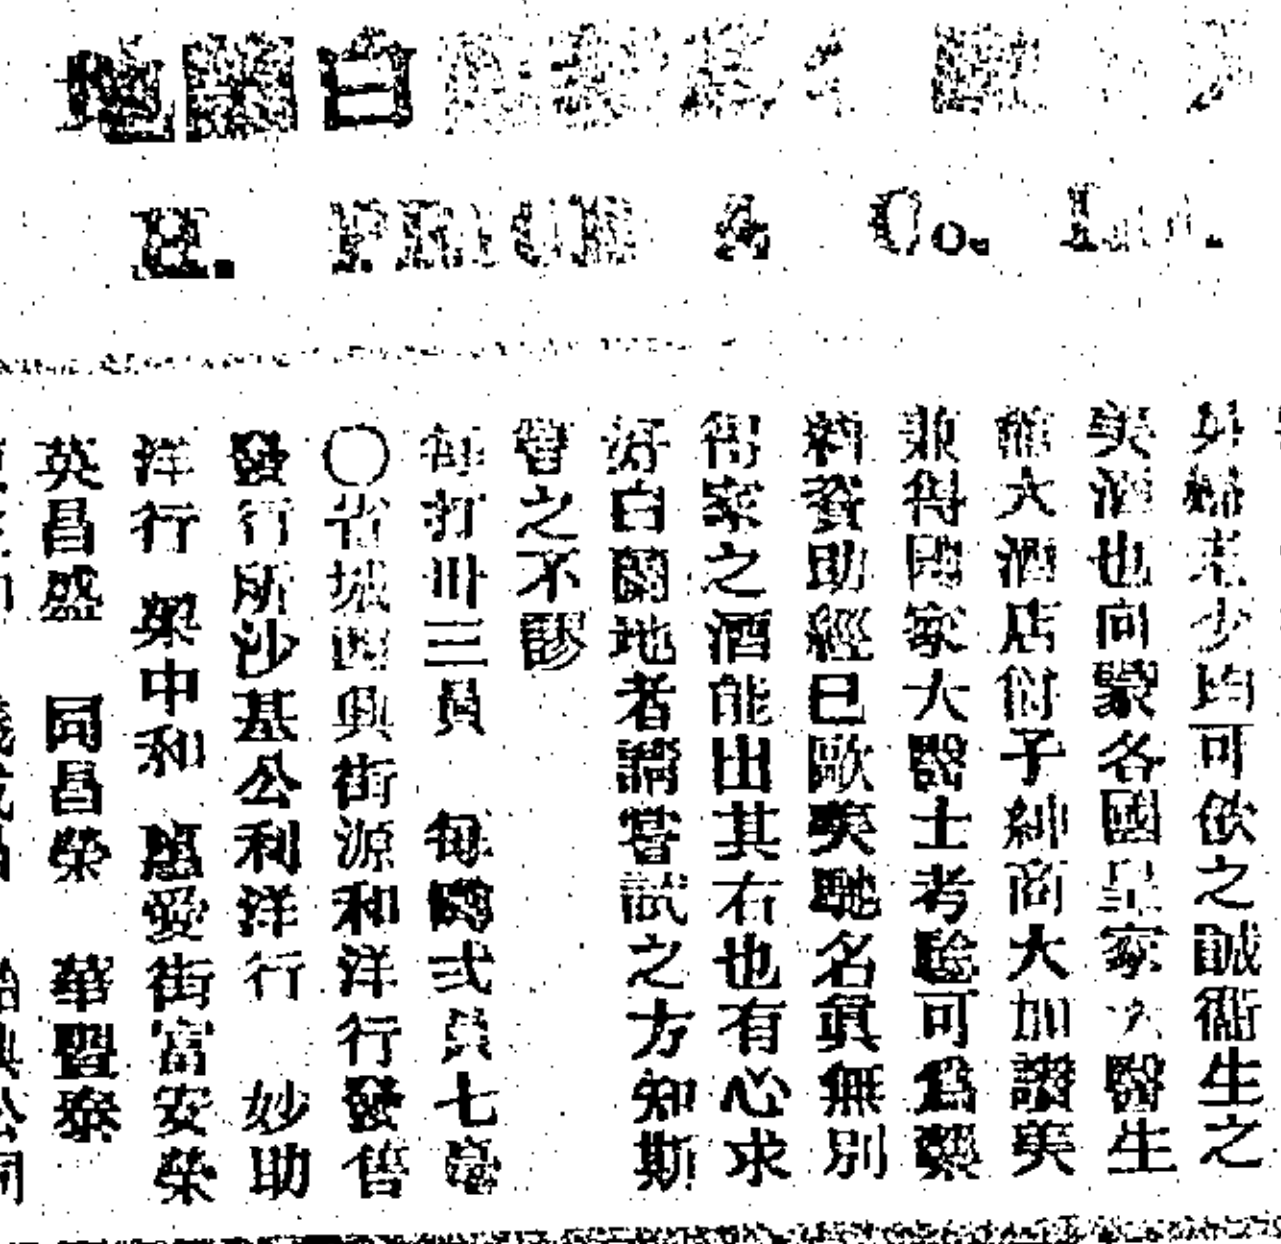 白蘭地
H. PRIOR & Co. Ltd.
男婦老少均可飲之誠衞生之
美酒也向蒙各國皇家大醫生
大酒店行子紳商大加讚美
兼得國家大醫士考驗可爲藥
料資助經已歐美馳名眞無別
得家之酒能出其右也有心求
好白蘭地者請嘗試之方知斯
言之不謬
每打卅三員 每樽弍員七毫
〇省城西興街源和洋行發售
發行所沙基公利洋行 妙助
洋行 梁中和 惠愛街富安榮
英昌盛 同昌榮 華豐泰